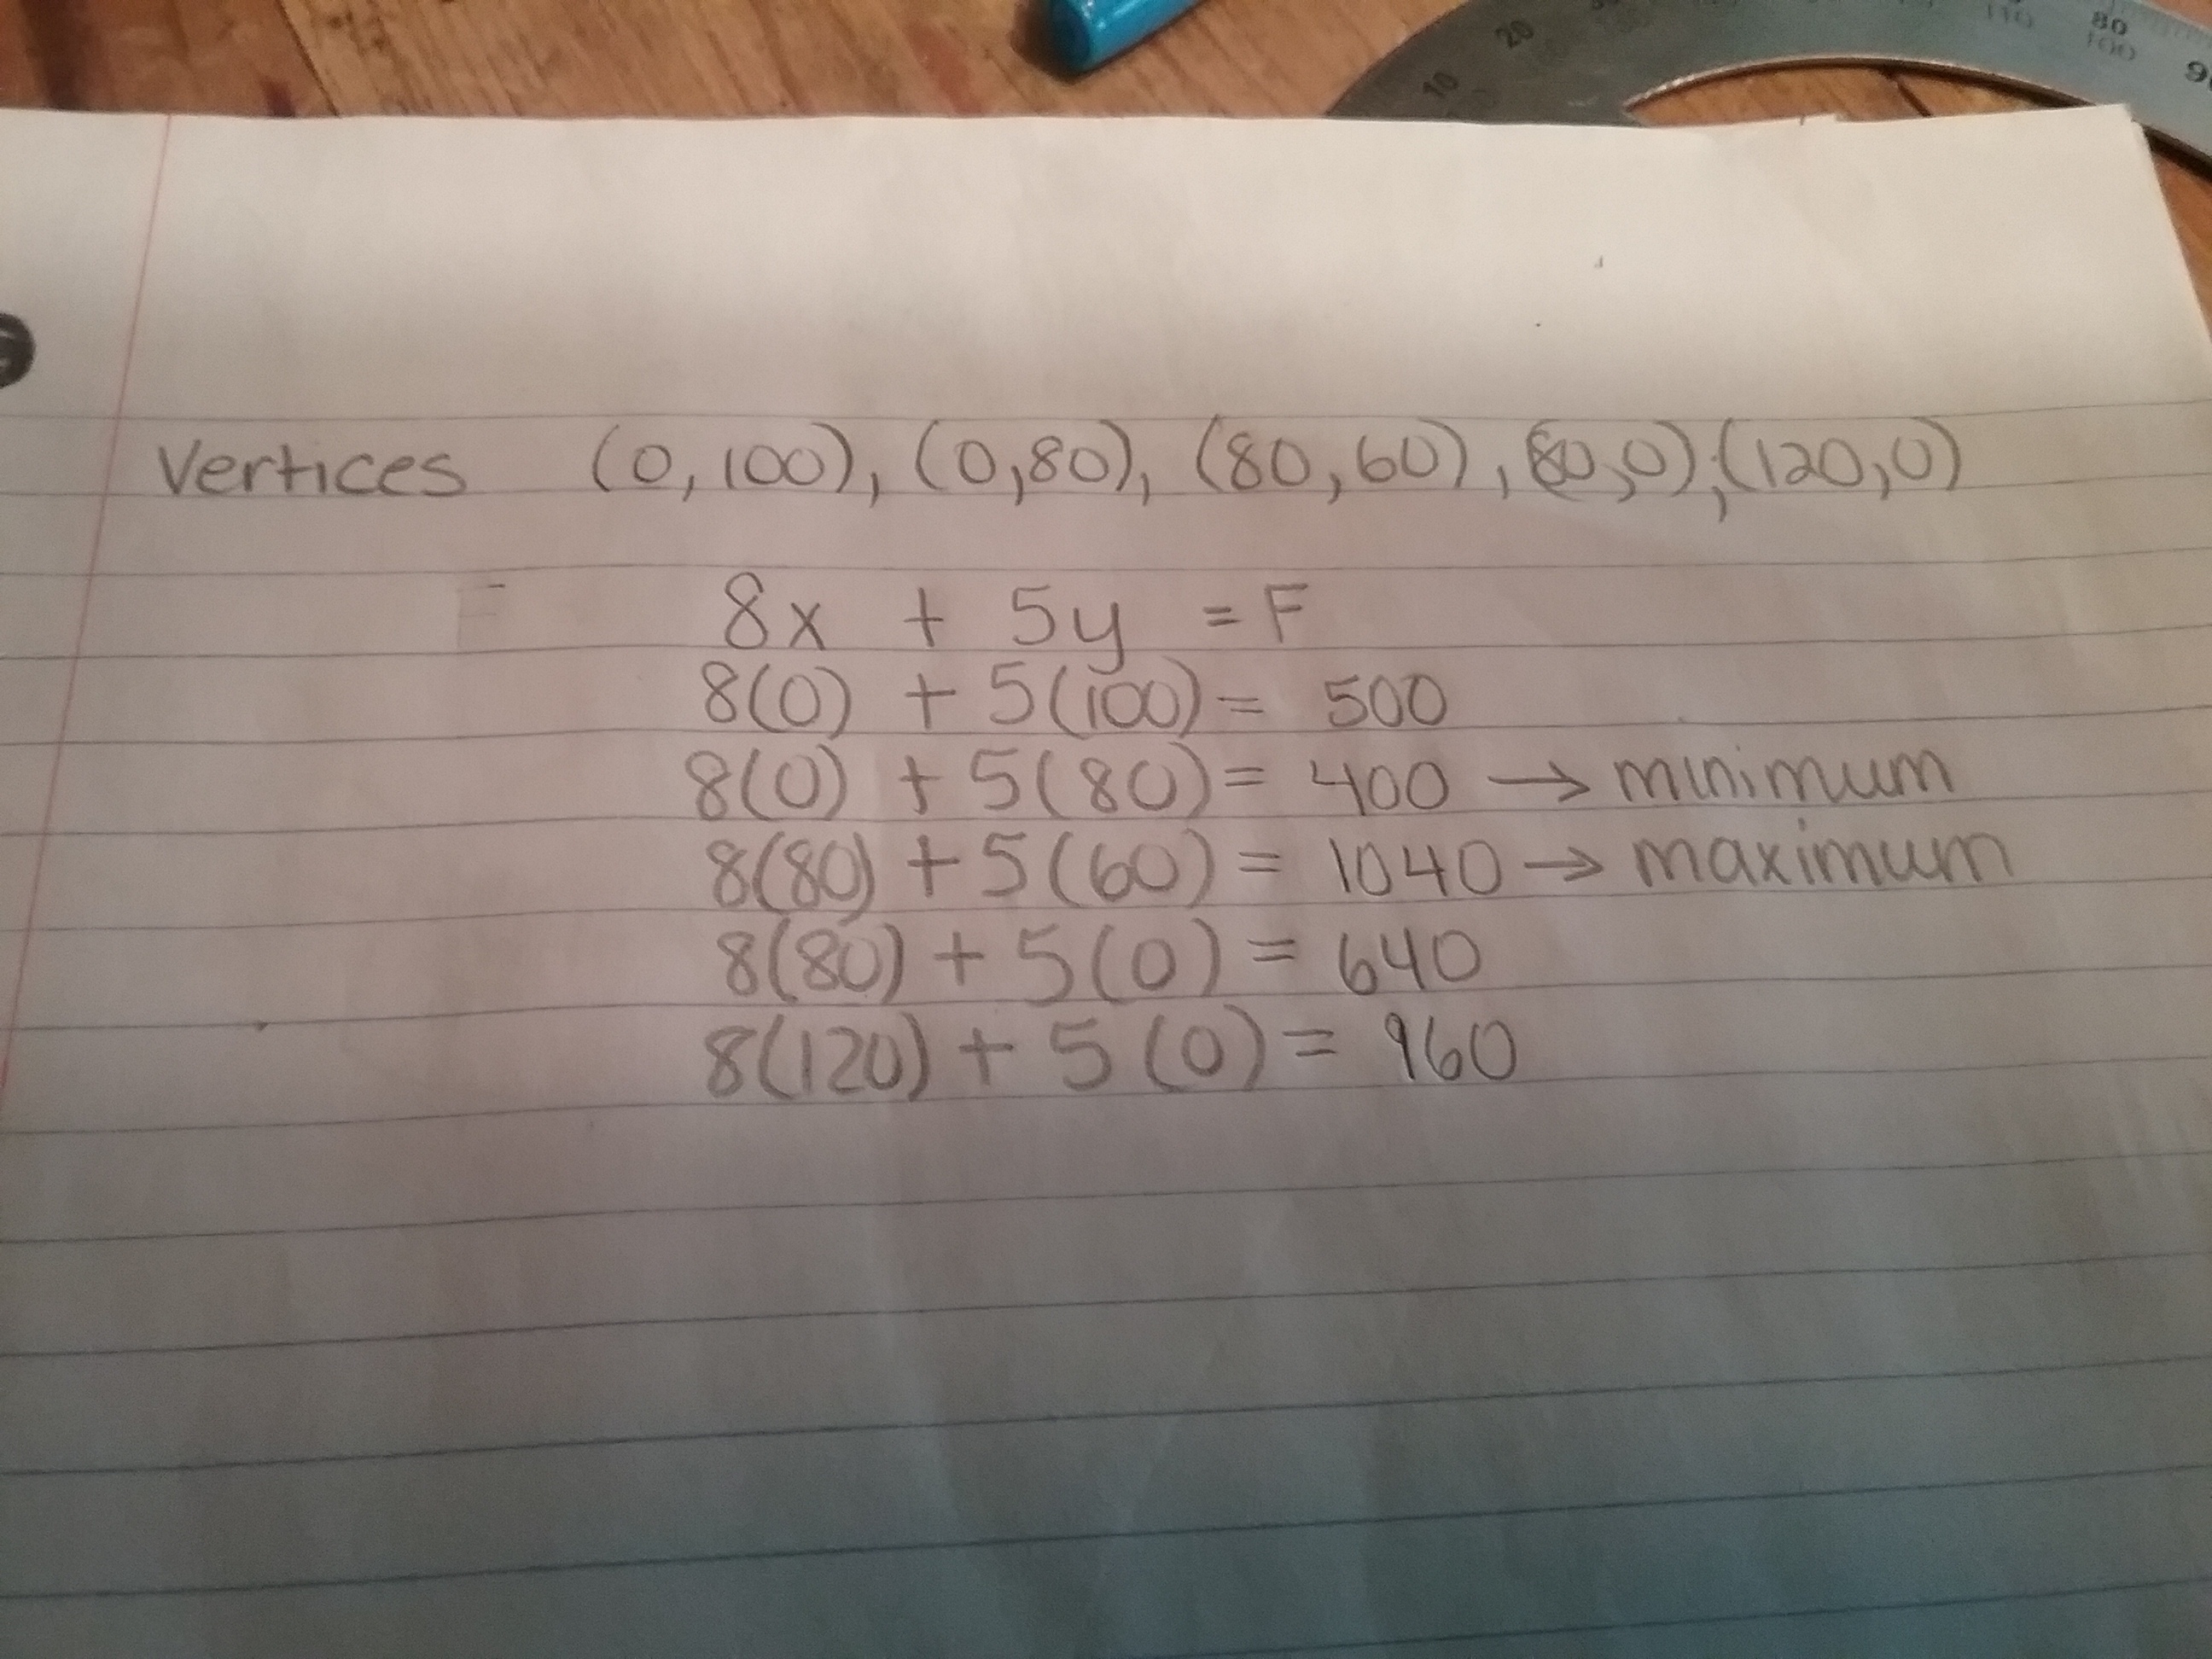 20 80
10 110 100
Vertices (0,100), (0,80), (80,60), (80,0), (120,0)
8x + 5y = F
8(0) + 5(100) = 500
8(0) + 5(80) = 400 → minimum
8(80) + 5(60) = 1040 → maximum
8(80) + 5(0) = 640
8(120) + 5(0) = 960